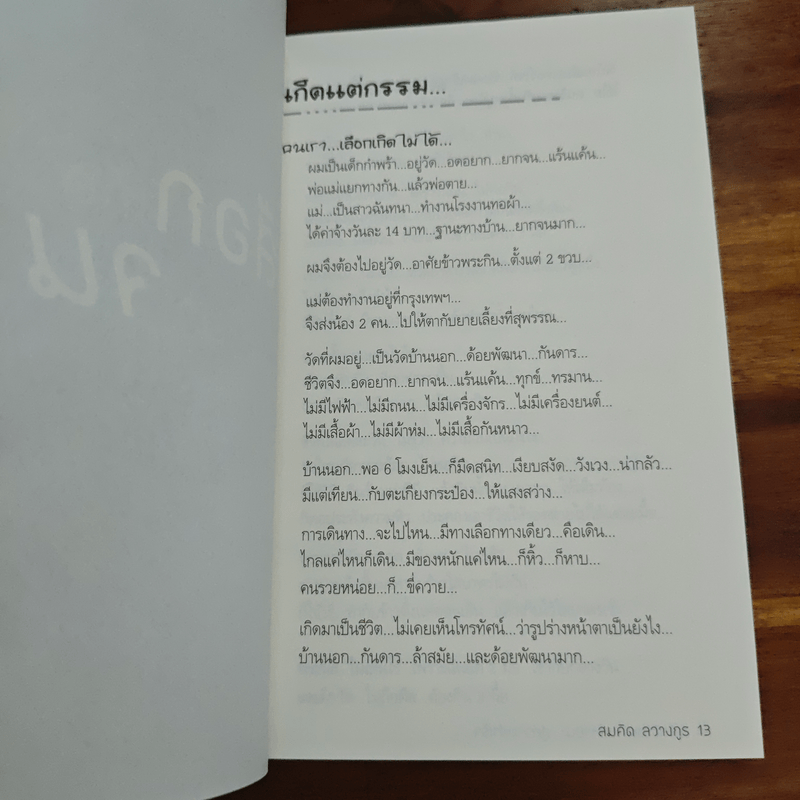 ือก
จน
นกีดแต่กรรม...
คนเรา...เลือกเกิดไม่ได้...
ผมเป็นเด็กกำพร้า...อยู่วัด...อดอยาก...ยากจน...แร้นแค้น...
พ่อแม่แยกทางกัน...แล้วพ่อตาย...
แม่...เป็นสาวฉันทนา...ทำงานโรงงานทอผ้า...
ได้ค่าจ้างวันละ 14 บาท...ฐานะทางบ้าน...ยากจนมาก...
ผมจึงต้องไปอยู่วัด...อาศัยข้าวพระกิน...ตั้งแต่ 2 ขวบ...
แม่ต้องทำงานอยู่ที่กรุงเทพฯ...
จึงส่งน้อง 2 คน...ไปให้ตากับยายเลี้ยงที่สุพรรณ...
วัดที่ผมอยู่...เป็นวัดบ้านนอก...ด้อยพัฒนา...กันดาร...
ชีวิตจึง...อดอยาก...ยากจน...แร้นแค้น...ทุกข์...ทรมาน...
ไม่มีไฟฟ้า...ไม่มีถนน...ไม่มีเครื่องจักร...ไม่มีเครื่องยนต์...
ไม่มีเสื้อผ้า...ไม่มีผ้าห่ม...ไม่มีเสื้อกันหนาว...
บ้านนอก...พอ 6 โมงเย็น...ก็มืดสนิท...เงียบสงัด...วังเวง...น่ากลัว...
มีแต่เทียน...กับตะเกียงกระป๋อง...ให้แสงสว่าง...
การเดินทาง...จะไปไหน...มีทางเลือกทางเดียว...คือเดิน...
ไกลแค่ไหนก็เดิน...มีของหนักแค่ไหน...ก็หิ้ว...ก็หาบ...
คนรวยหน่อย...ก็...ขี่ควาย...
เกิดมาเป็นชีวิต...ไม่เคยเห็นโทรทัศน์...ว่ารูปร่างหน้าตาเป็นยังไง...
บ้านนอก...กันดาร...ล้าสมัย...และด้อยพัฒนามาก...
สมคิด ลวางกูร 13